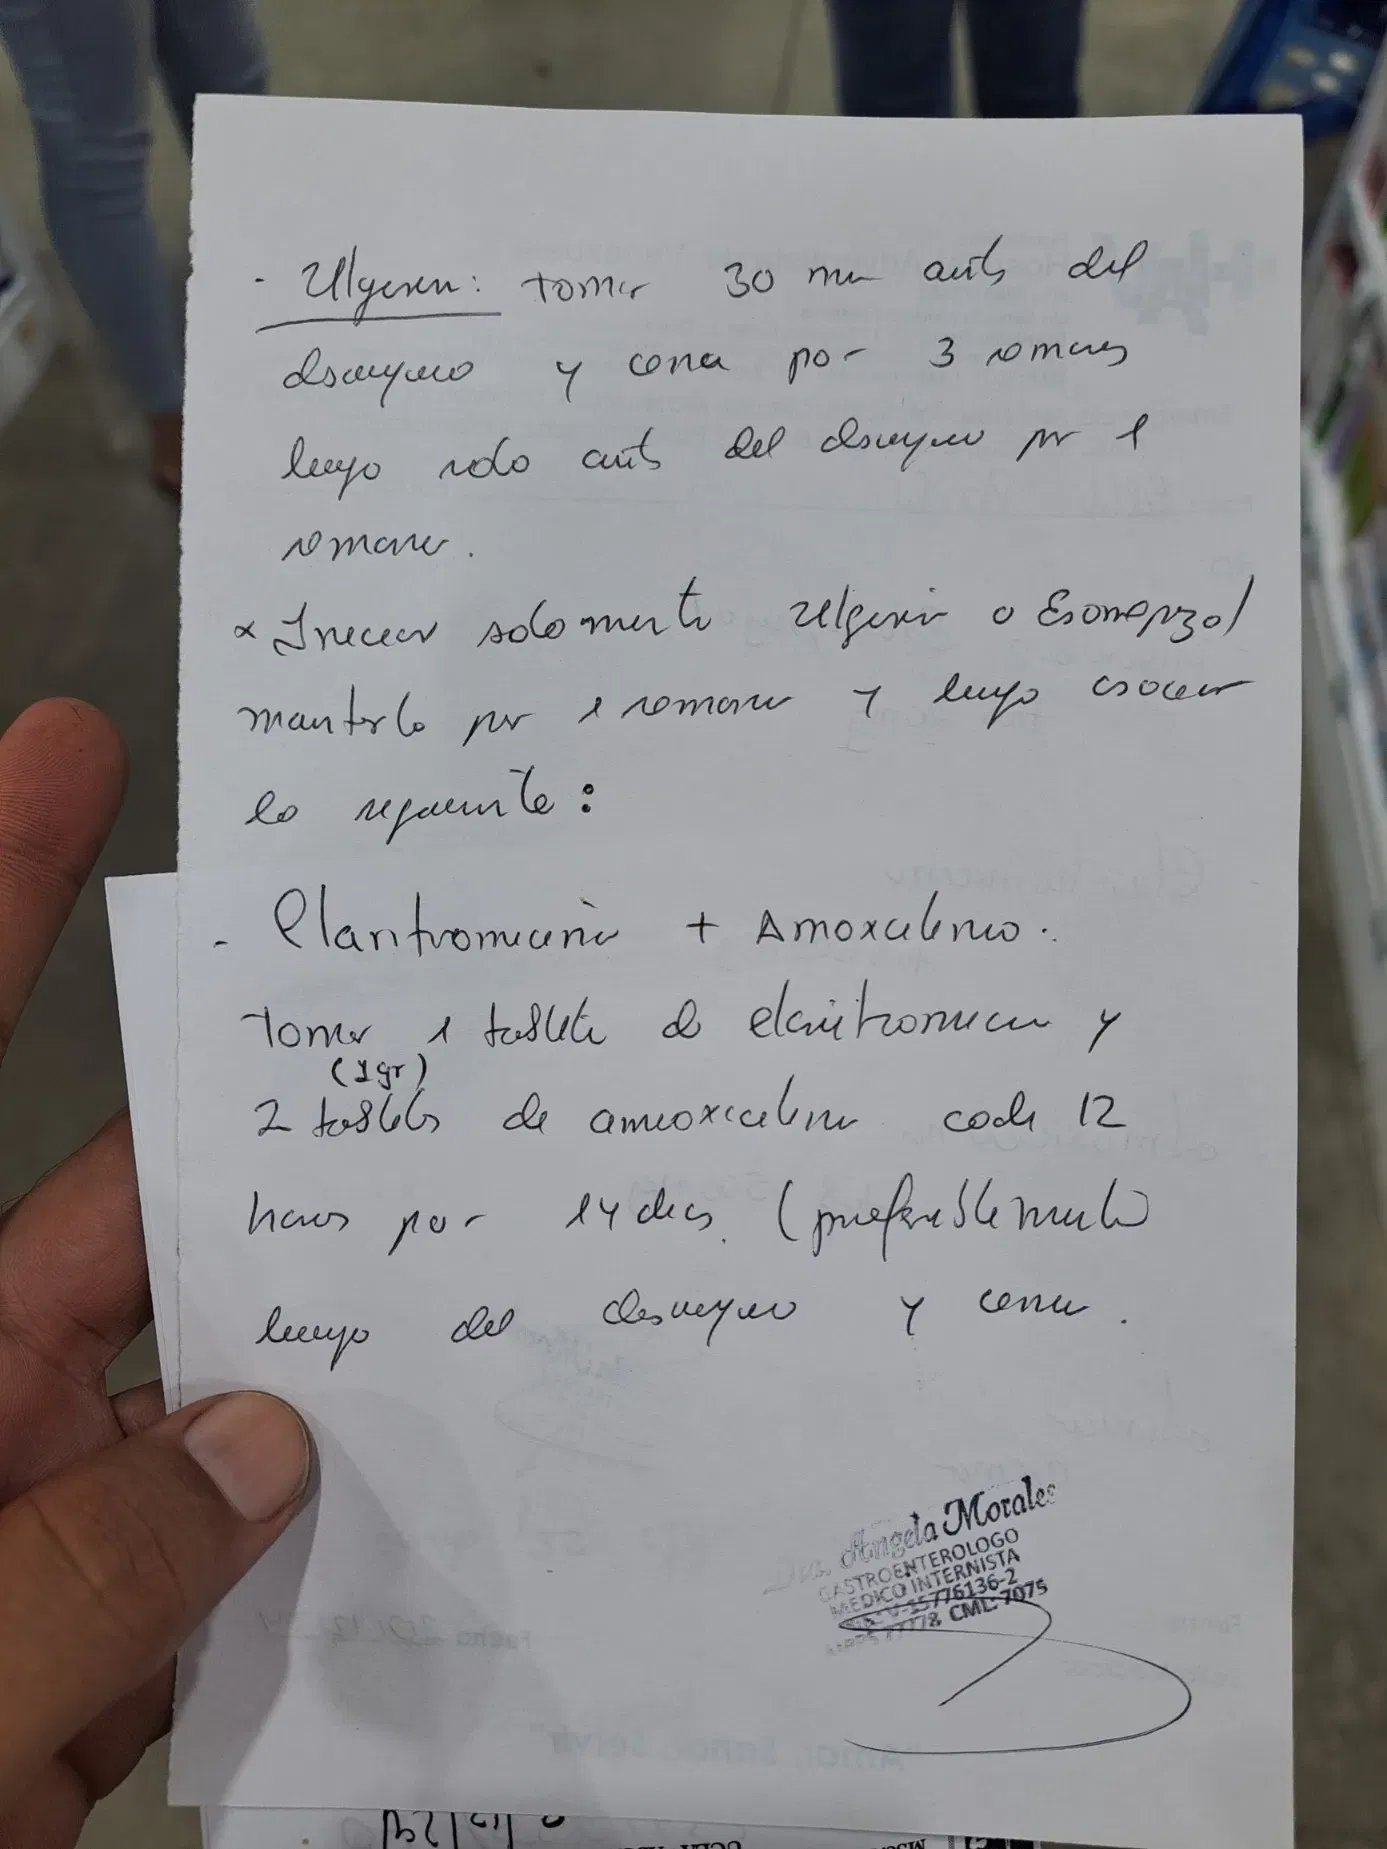 - Ulgexin: tomar 30 min antes del
desayuno y cena por 3 semanas
luego solo antes del desayuno por 1
semana.
* Iniciar solamente Ulgexin o Esomeprazol
mantenerlo por 1 semana y luego asociar
lo siguiente:
- Claritromicina + Amoxicilina.
Tomar 1 tableta de claritromicina y
(1gr)
2 tabletas de amoxicilina cada 12
horas por 14 dias. (preferiblemente
luego del desayuno y cena.
Dra. Angela Morales
GASTROENTEROLOGO
MEDICO INTERNISTA
V-15776136-2
77778 CML: 7075